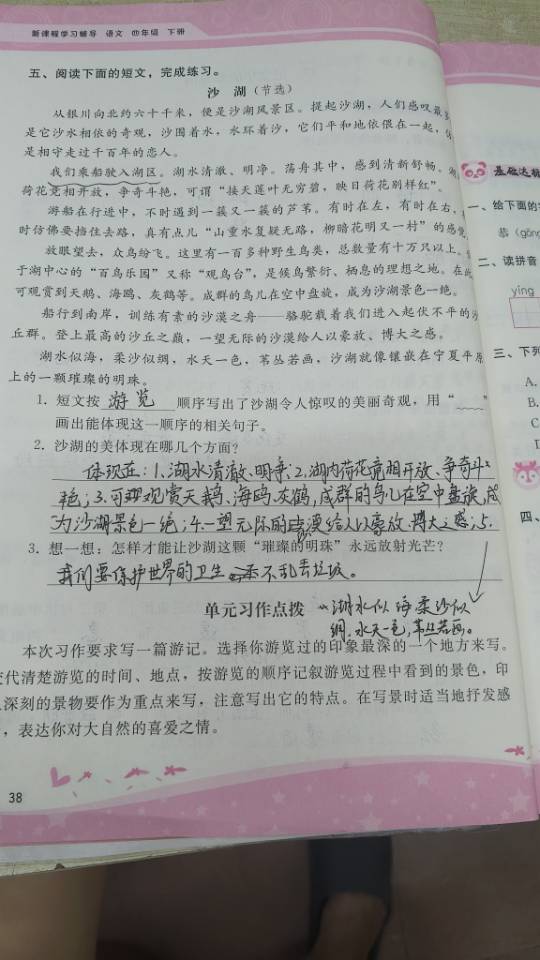 新课程学习辅导 语文 四年级 下册
五、阅读下面的短文，完成练习。
沙 湖（节选）
从银川向北约六十千米，便是沙湖风景区。提起沙湖，人们感叹最
是它沙水相依的奇观，沙围着水，水环着沙，它们平和地依偎在一起，
是相守走过千百年的恋人。
我们乘船驶入湖区。湖水清澈、明净。荡舟其中，感到清新舒畅。
荷花竞相开放，争奇斗艳，可谓“接天莲叶无穷碧，映日荷花别样红”。
游船在行进中，不时遇到一簇又一簇的芦苇。有时在左，有时在右，
时仿佛要挡住去路，真有点儿“山重水复疑无路，柳暗花明又一村”的感觉
放眼望去，众鸟纷飞。这里有一百多种野生鸟类，总数量有十万只以上。
于湖中心的“百鸟乐园”又称“观鸟台”，是候鸟繁衍、栖息的理想之地。在此
可观赏到天鹅、海鸥、灰鹤等。成群的鸟儿在空中盘旋，成为沙湖景色一绝。
船行到南岸，训练有素的沙漠之舟——骆驼载着我们进入起伏不平的沙
丘群。登上最高的沙丘之巅，一望无际的沙漠给人以豪放、博大之感。
湖水似海，柔沙似绸，水天一色，苇丛若画，沙湖就像镶嵌在宁夏平原
上的一颗璀璨的明珠。
1. 短文按 游览 顺序写出了沙湖令人惊叹的美丽奇观，用“ ”
画出能体现这一顺序的相关句子。
2. 沙湖的美体现在哪几个方面？
体现在：1、湖水清澈、明净；2、湖内荷花竞相开放、争奇斗
艳；3、可观赏天鹅、海鸥、灰鹤，成群的鸟儿在空中盘旋，成
为沙湖景色一绝；4、一望无际的沙漠给人以豪放、博大之感；5、
3. 想一想：怎样才能让沙湖这颗“璀璨的明珠”永远放射光芒？
我们要保护世界的卫生 不乱丢垃圾。
单元习作点拨
湖水似海柔沙似
绸，水天一色，苇丛若画。
本次习作要求写一篇游记。选择你游览过的印象最深的一个地方来写。
交代清楚游览的时间、地点，按游览的顺序记叙游览过程中看到的景色，印
深刻的景物要作为重点来写，注意写出它的特点。在写景时适当地抒发感
，表达你对大自然的喜爱之情。
38
基础达标
一、给下面的
二、读拼音
yíng
三、下列
A.
B.
C.
四、